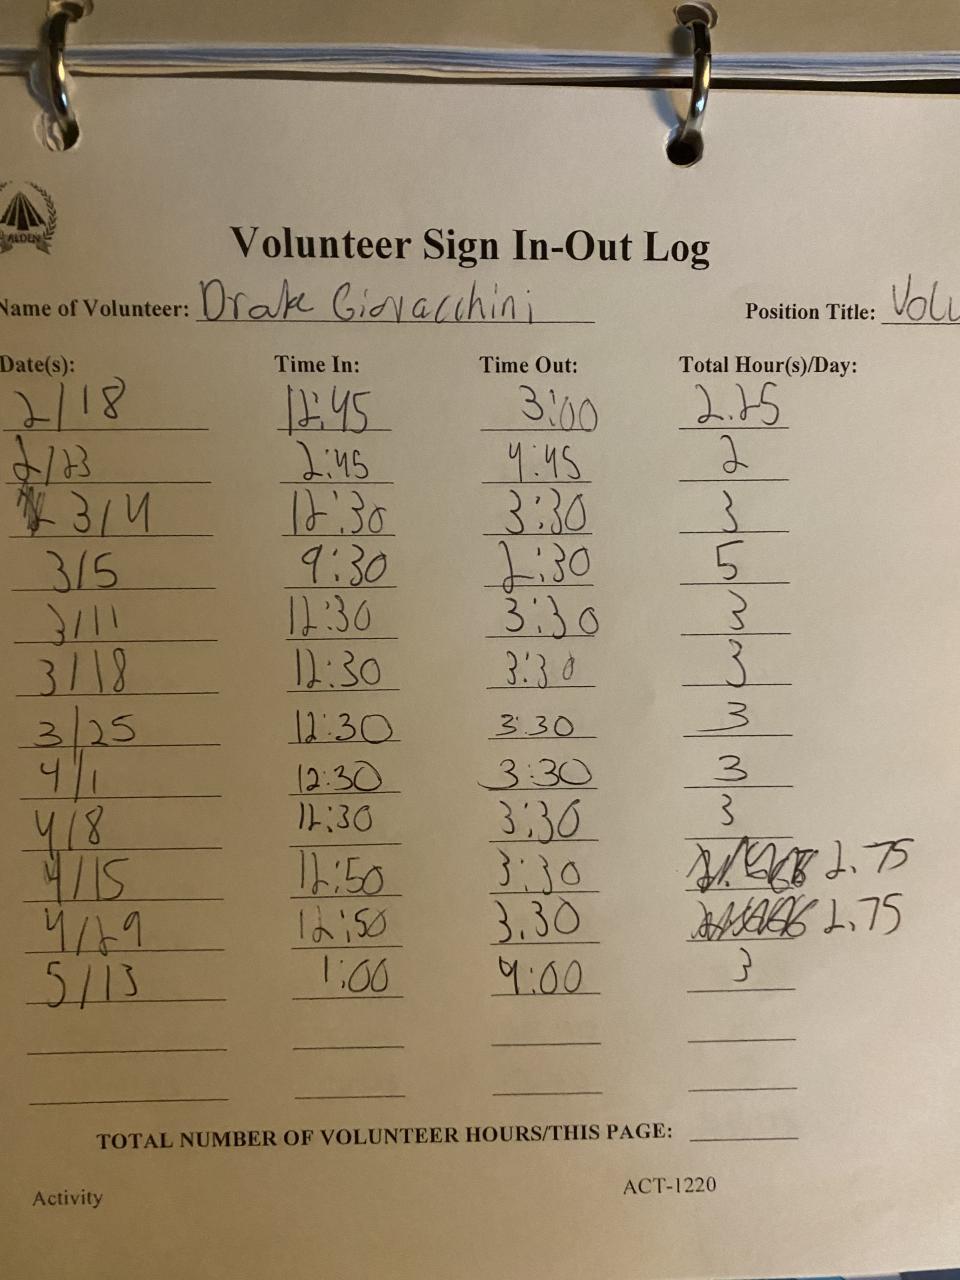 ALDEN
Volunteer Sign In-Out Log
Name of Volunteer: Drake Giovacchini Position Title: Volu
Date(s): Time In: Time Out: Total Hour(s)/Day:
2/18 12:45 3:00 2.25
2/23 2:45 4:45 2
3/4 12:30 3:30 3
3/5 9:30 2:30 5
3/11 12:30 3:30 3
3/18 12:30 3:30 3
3/25 12:30 3:30 3
4/1 12:30 3:30 3
4/8 12:30 3:30 3
4/15 12:50 3:30 2.75
4/29 12:50 3.30 2.75
5/13 1:00 4:00 3
TOTAL NUMBER OF VOLUNTEER HOURS/THIS PAGE:
Activity ACT-1220